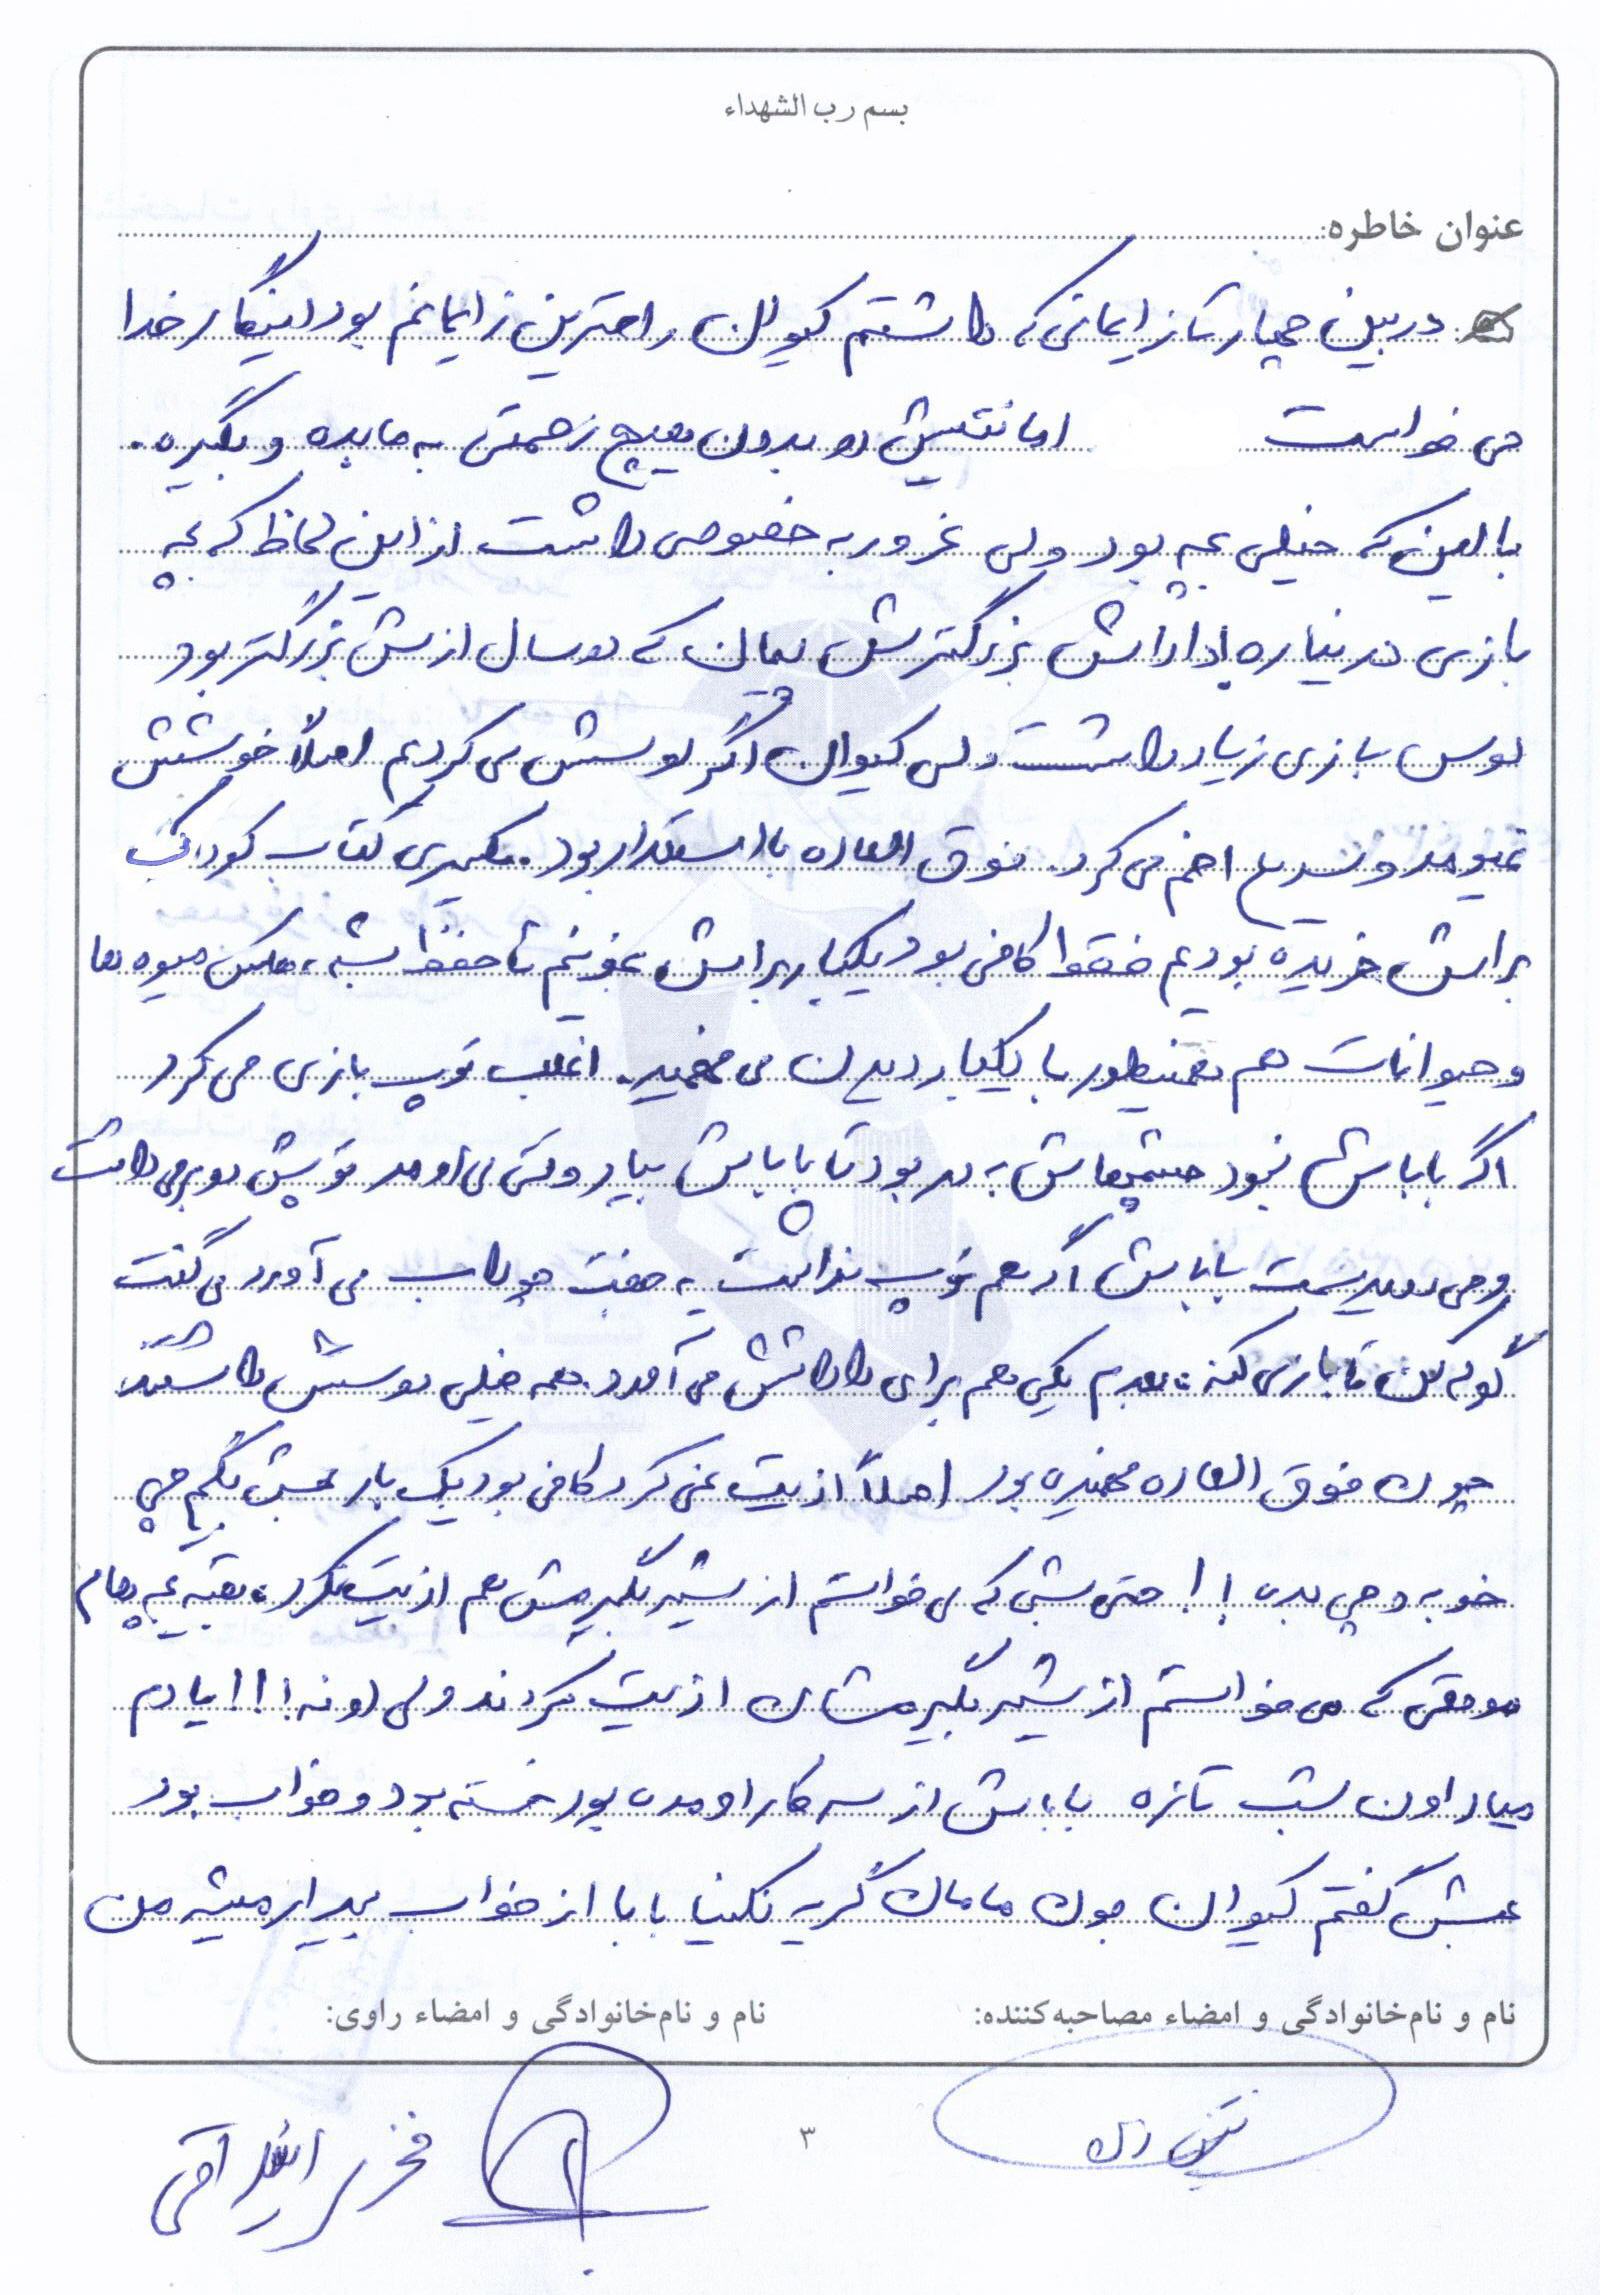 بسم رب الشهداء
عنوان خاطره:
در بین چهار تا زایمانی که داشتم کیوان راحترین زایمانم بود اینگار خدا
می خواست امانتیش رو بدون هیچ زحمتی به ما بده و بگیره.
با این که خیلی بچه بود ولی غرور به خصوصی داشت از این لحاظ که بچه
بازی در نیاره داداش بزرگترش پیمان که دو سال ازش بزرگتر بود
لوس بازی زیاد داشت ولی کیوان اگر لوسش می کردیم اصلاً خوشش
نمیومد و سریع اخم می کرد. فوق العاده با استعداد بود. یکسری کتاب کودک
براش خریده بودیم فقط کافی بود یکبار براش بخونیم تا حفظ بشه، عکس میوه ها
و حیوانات هم همینطور با یکبار دیدن می فهمید. اغلب توپ بازی می کرد
اگر باباش نبود چشمهاش به در بود تا باباش بیاد وقتی می اومد توپش رو برمی داشت
و می دوید سمت باباش اگر هم توپ نداشت یه جفت جوراب می آورد می گفت
گوله کن تا بازی کنه، بعدم یکی هم برای داداشش می آورد. همه خیلی دوسش داشتند
چون فوق العاده فهمیده بود اصلاً اذیت نمی کرد کافی بود یک بار بهش بگیم چی
خوبه و چی بده !! حتی شبی که می خواستم از شیر بگیرمش هم اذیت نکرد، بقیه بچه هام
موقعی که می خواستم از شیر بگیرمشان اذیت کردند ولی اون نه!!! یادم
میاد اون شب تازه باباش از سر کار اومده بود خسته بود و خواب بود
بهش گفتم کیوان جون مامان گریه نکنیا بابا از خواب بیدار میشه من
نام و نام‌خانوادگی و امضاء مصاحبه‌کننده:
نام و نام‌خانوادگی و امضاء راوی:
۳